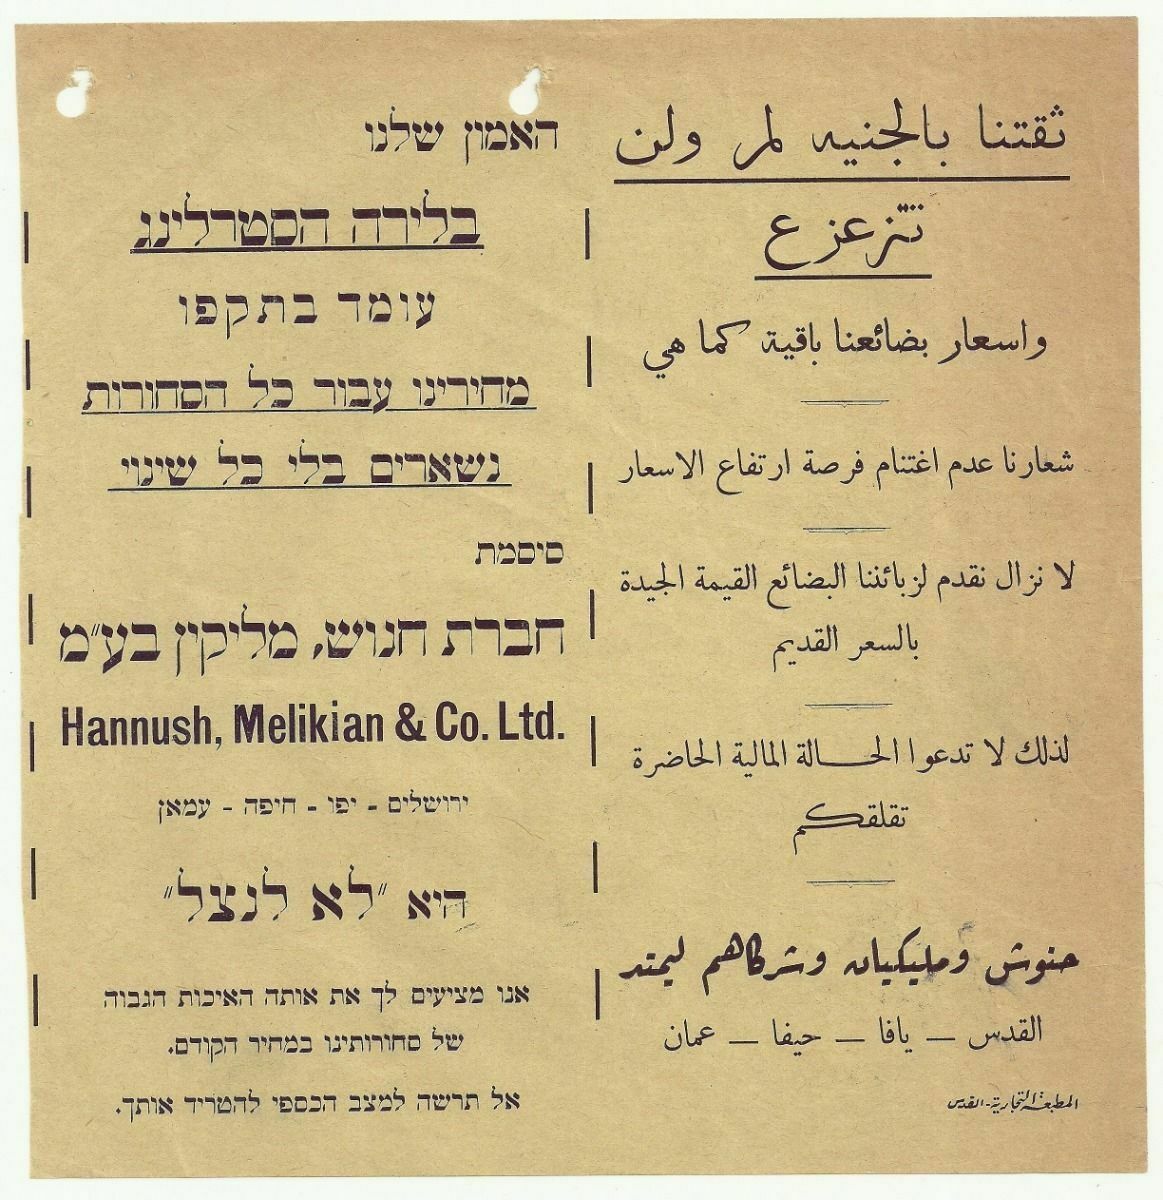 ثقتنا بالجنيه لم ولن
تتزعزع
واسعار بضائعنا باقية كما هي
شعارنا عدم اغتنام فرصة ارتفاع الاسعار
لا نزال نقدم لزبائننا البضائع القيمة الجيدة
بالسعر القديم
لذلك لا تدعوا الحالة المالية الحاضرة
تقلقكم
حنوش ومليكيان وشركاهم ليمتد
القدس — يافا — حيفا — عمان
المطبعة التجارية - القدس
האמון שלנו
בלירה הסטרלינג
עומד בתקפו
מחירינו עבור כל הסחורות
נשארים בלי כל שינוי
סיסמת
חברת חנוש, מליקין בע"מ
Hannush, Melikian & Co. Ltd.
ירושלים - יפו - חיפה - עמאן
היא "לא לנצל"
אנו מציעים לך את אותה האיכות הגבוה
של סחורותינו במחיר הקודם.
אל תרשה למצב הכספי להטריד אותך.